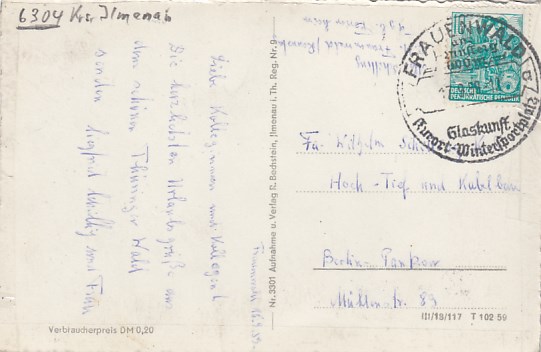 6304 Kr. Ilmenau
Liebe Kolleginnen und Kollegen!
Die herzlichsten Urlaubsgrüße aus
dem schönen Thüringer Wald
senden
und Frau
Frauenwald
Verbraucherpreis DM 0,20
Nr. 3301 Aufnahme u. Verlag R. Bechstein, Ilmenau i. Th. Reg. Nr. 9
FRAUENWALD
Glaskunst
Kurort-Wintersportplatz
DEUTSCHE
DEMOKRATISCHE REPUBLIK
Fa. Wilhelm
Hoch-Tief und Kabelbau
Berlin-Pankow
Mühlenstr. 83
III/18/117 T 102 59